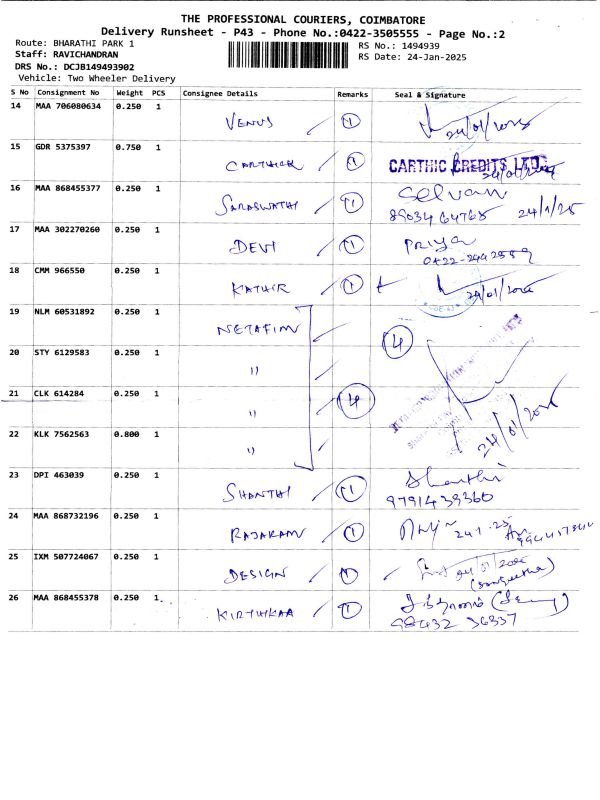 THE PROFESSIONAL COURIERS, COIMBATORE
Delivery Runsheet - P43 - Phone No.:0422-3505555 - Page No.:2
Route: BHARATHI PARK 1
Staff: RAVICHANDRAN
DRS No.: DCJB149493902
Vehicle: Two Wheeler Delivery
RS No.: 1494939
RS Date: 24-Jan-2025
S No Consignment No Weight PCS Consignee Details Remarks Seal & Signature
14 MAA 706080634 0.250 1 VENUS 1 24/01/2025
15 GDR 5375397 0.750 1 CARTHICK 1 CARTHIC CREDITS LTD.
16 MAA 868455377 0.250 1 SARASWATHI 1 Selvam
89034 64765 24/1/25
17 MAA 302270260 0.250 1 DEVI 1 Priya
0422-2442559
18 CMM 966550 0.250 1 KATHIR 1 24/01/2025
19 NLM 60531892 0.250 1 NETAFIM 4
20 STY 6129583 0.250 1 "
21 CLK 614284 0.250 1 " 4
22 KLK 7562563 0.800 1 " 24/01/2025
23 DPI 463039 0.250 1 SHANTHI 1 Shanthi
9791439360
24 MAA 868732196 0.250 1 RAJARAM 1 24.1.25
25 IXM 507724067 0.250 1 DESIGN 1 (Sangeetha)
26 MAA 868455378 0.250 1 KIRTHIKAA 1
98432 36337